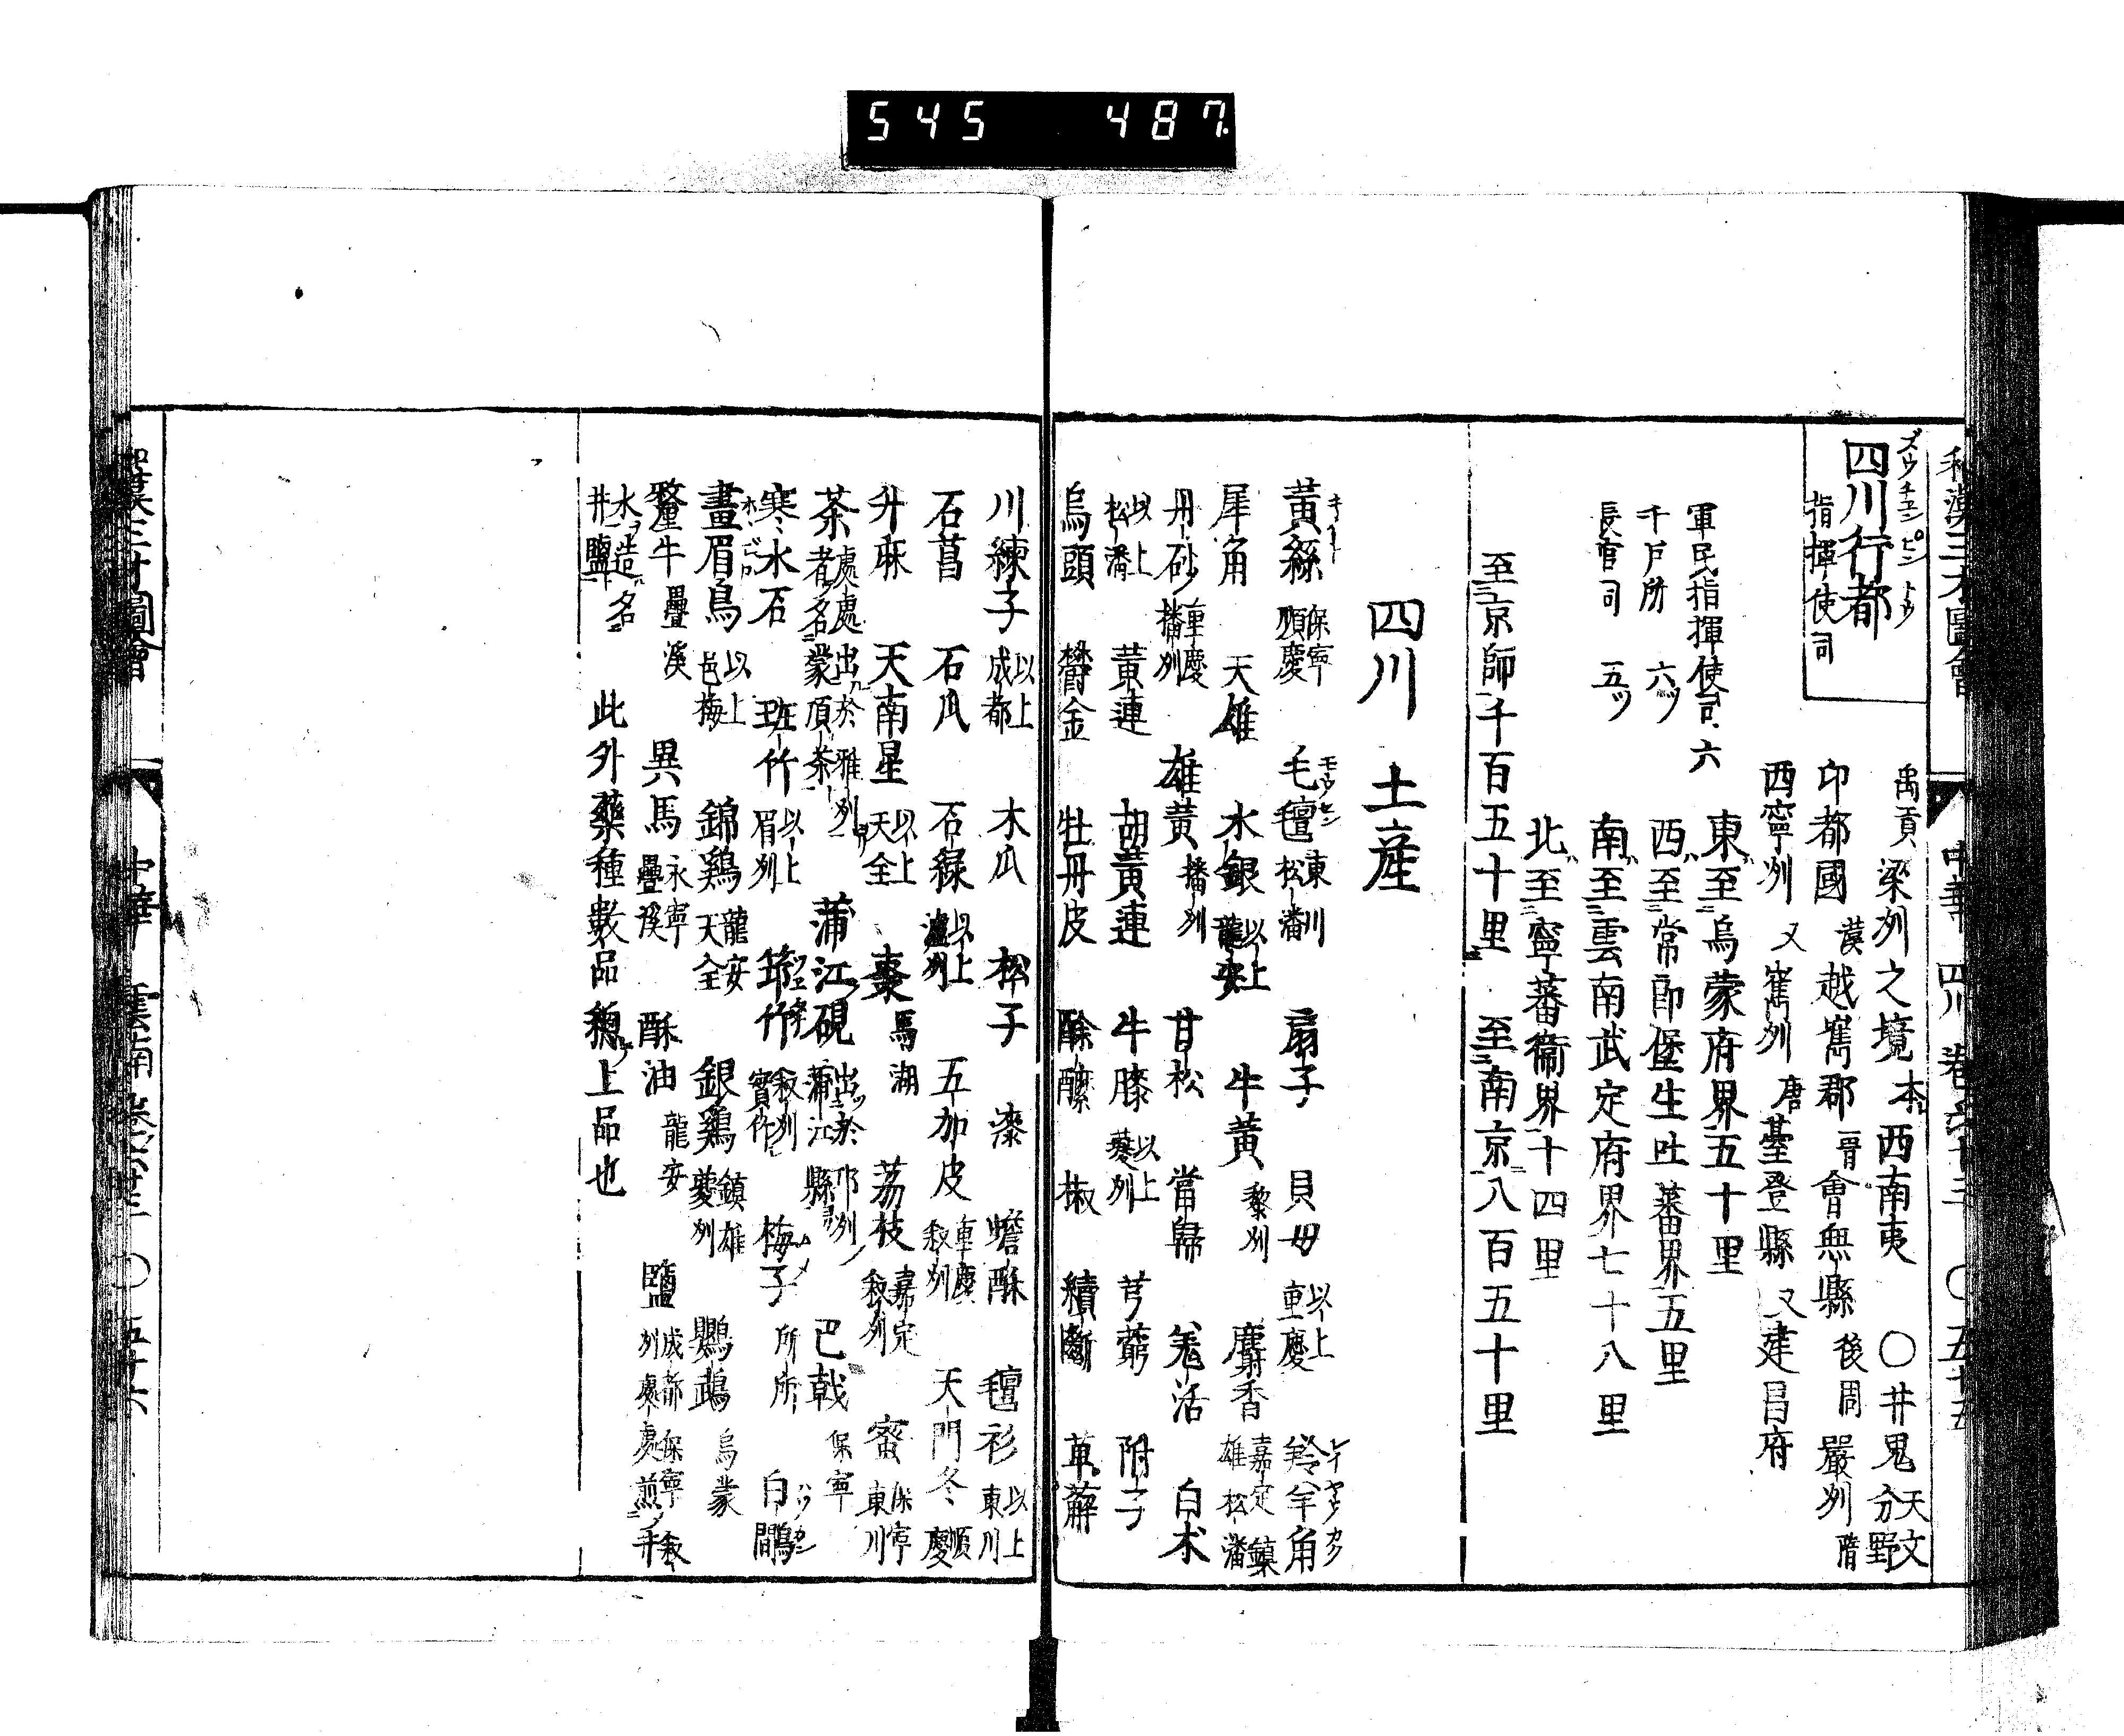 545 487
和漢三才圖會 中華 四川 卷六十三 〇五十五
四川行都 指揮使司
ズウチユン ピン トウ
禹貢梁列之境本西南夷 〇井鬼分野 天文
印都國 漢越嶲郡 晉會無縣 後周嚴列 隋
西寧列 又嶲列 唐臺登縣 又建昌府
軍民指揮使司 六 東至烏蒙府界五十里
千戸所 六ツ 西至常郎堡生吐蕃界五里
長官司 五ツ 南至雲南武定府界七十八里
北至寧蕃衞界十四里
至京師一千百五十里 至南京八百五十里
四川 土産
黃絲 保寧 順慶 毛氊 東川 松潘 扇子 貝母 以上 重慶 羚羊角
犀角 天雄 水銀 以上 龍安 牛黃 黎列 麝香 嘉定 鎮雄 松潘
丹砂 重慶 播列 雄黃 播列 甘松 當歸 羗活 白朮
以上 松潘 黃連 胡黃連 牛膝 以上 夔列 芎藭 附子
烏頭 欝金 牡丹皮 酴醿 椒 續斷 萆薢
川練子 以上 成都 木瓜 松子 漆 蟾酥 氊衫 以上 東川
石菖 石瓜 石緑 以上 瀘列 五加皮 重慶 叙列 天門冬 順慶
升麻 天南星 以上 天全 棗 馬湖 茘枝 嘉定 叙列 蜜 保寧 東川
茶 處處出於雅列者名蒙頂茶 蒲江硯 出於邛列蒲江縣 巴戟 保寧
寒水石 班竹 以上 眉列 筇竹 叙列 實竹 梅子 所所 白鷴
畫眉鳥 以上 邑梅 錦鷄 龍安 天全 銀鷄 鎮雄 夔列 鸚鵡 烏蒙
犛牛 疊溪 異馬 永寧 疊溪 酥油 龍安 鹽 成都 保寧 叙列 處處煎井
水造名井鹽 此外藥種數品穂上品也
和漢三才圖會 中華 雲南 卷六十三 〇五十六